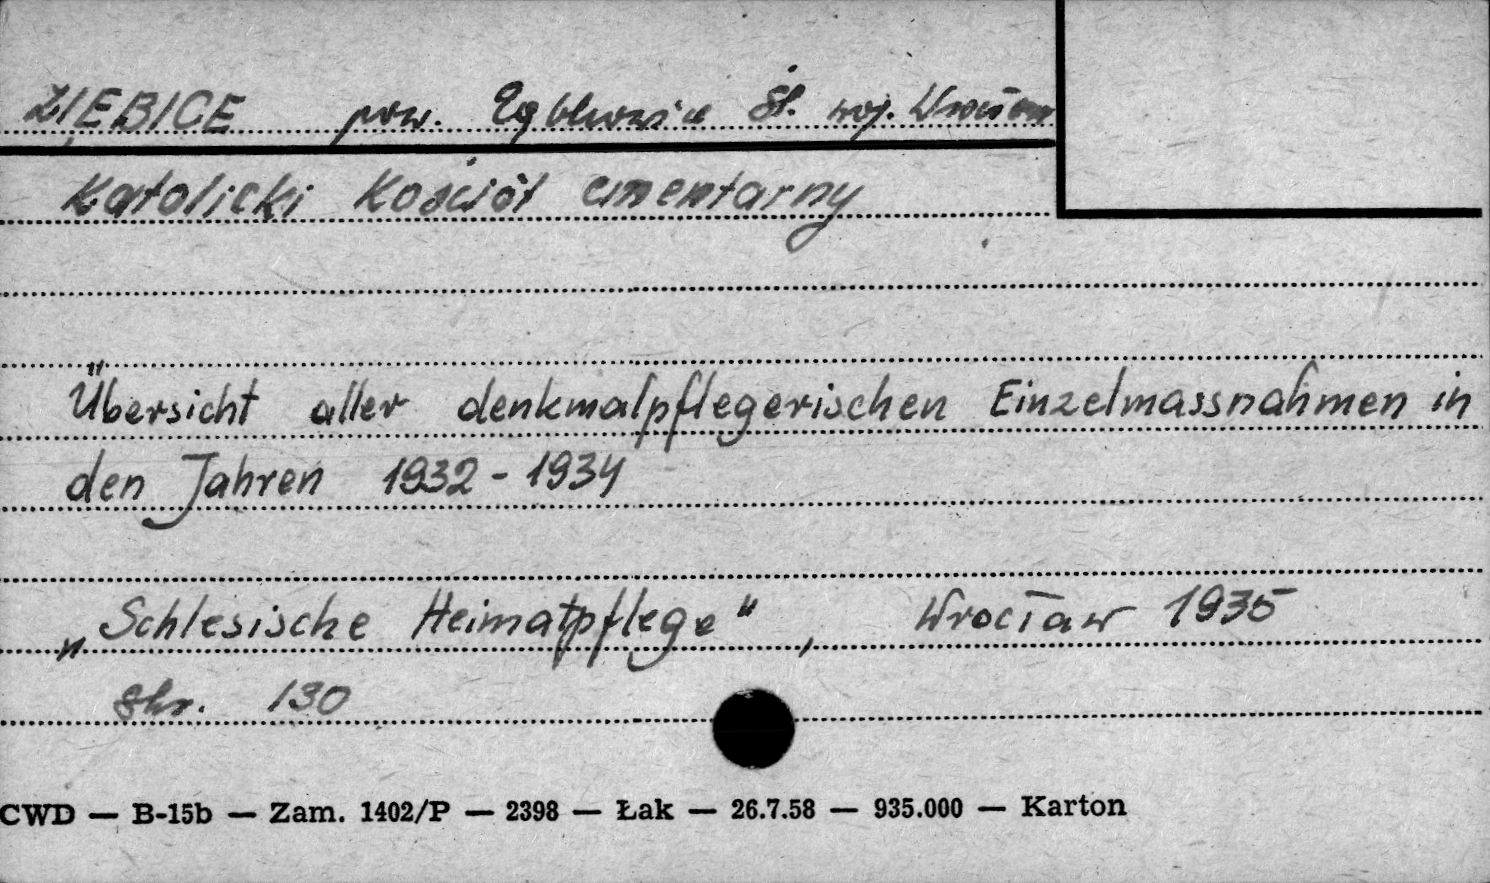 ZIĘBICE pow. Ząbkowice Śl. woj. Wrocław
Katolicki Kościół cmentarny
Übersicht aller denkmalpflegerischen Einzelmassnahmen in
den Jahren 1932 - 1934
„Schlesische Heimatpflege", Wrocław 1935
str. 130
CWD — B-15b — Zam. 1402/P — 2398 — Łak — 26.7.58 — 935.000 — Karton